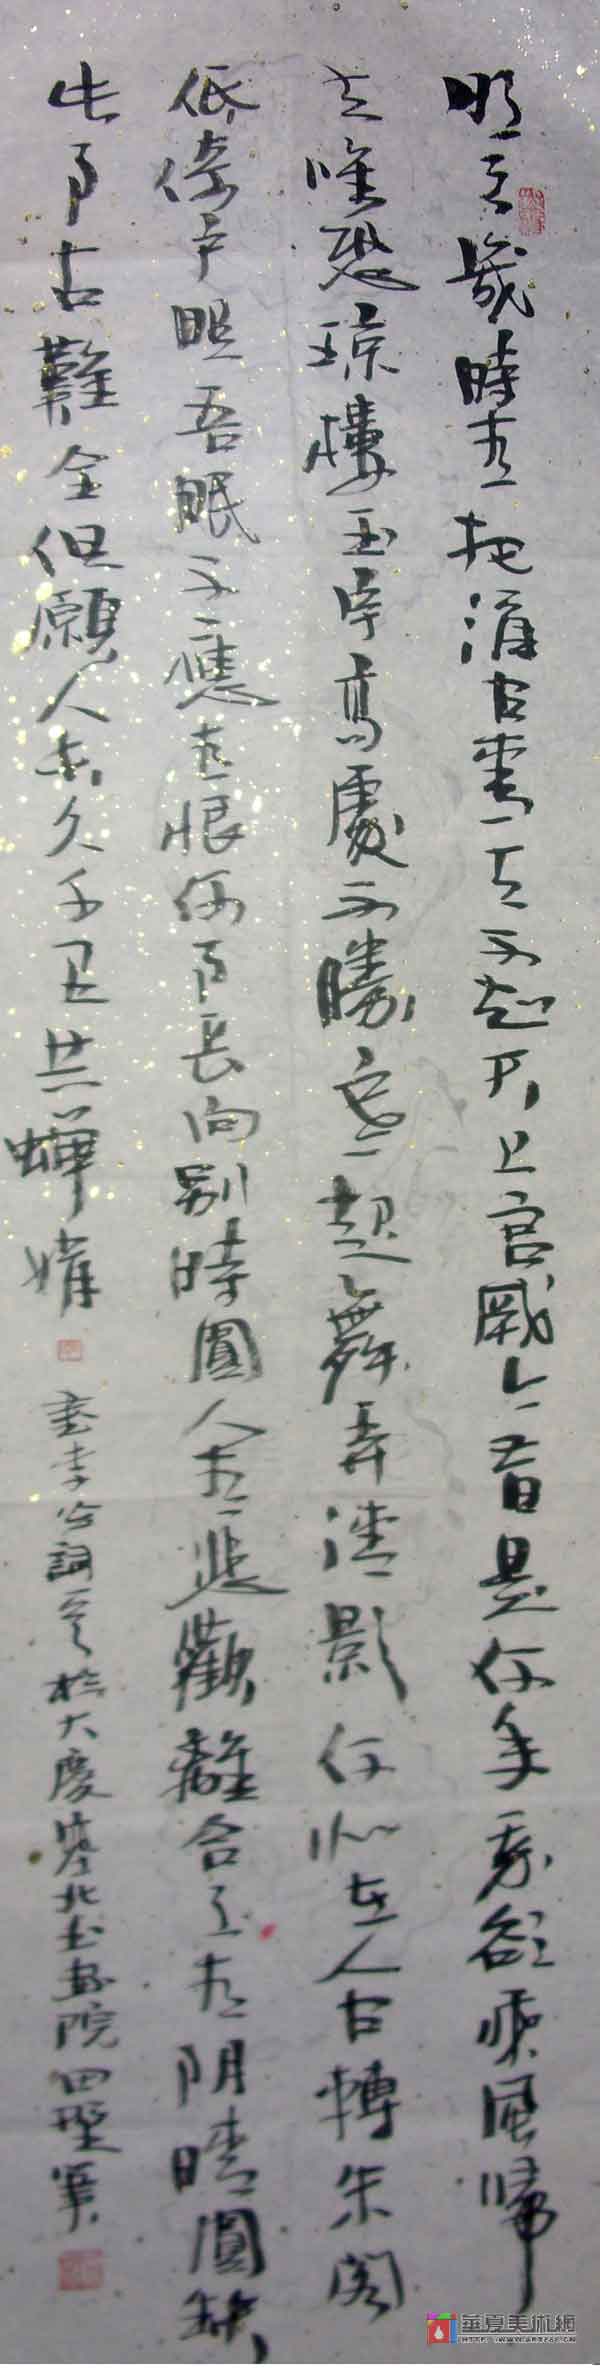 明月幾時有把酒问青天不知天上宫阙今昔是何年我欲乘風歸
去唯恐琼樓玉宇高處不勝寒起舞弄清影何似在人间轉朱阁
低倚户照吾眠不應有恨何事長向别時圓人有悲歡離合月有阴晴圓缺
此事古難全但願人长久千里共蟬娟
書李公詞一首於大慶塞北书画院田野筆
華夏美術網